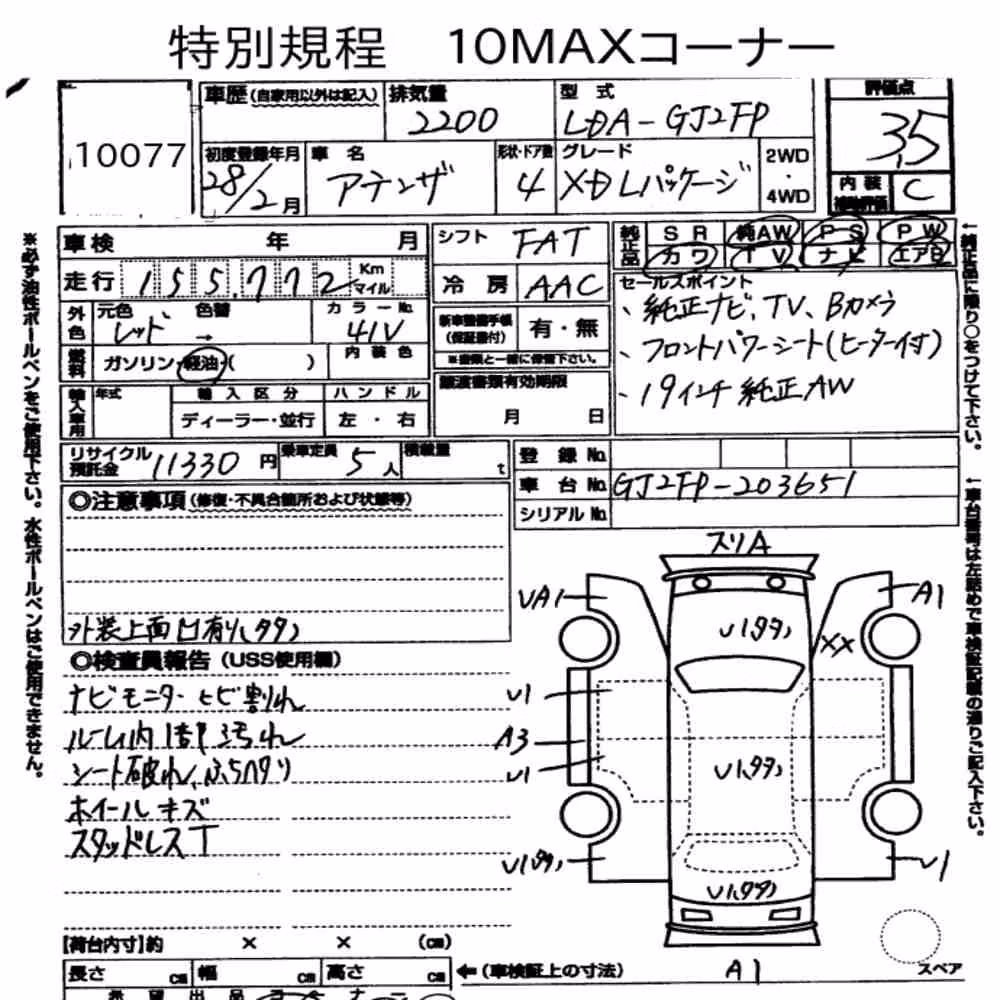 特別規程 10MAXコーナー
10077
車歴(自家用以外は記入) 排気量 2200 型式 LDA-GJ2FP 評価点 3.5
初度登録年月 28/2月 車名 アテンザ 形状・ドア数 4 グレード XDLパッケージ 2WD・4WD 内装 補助評価 C
車検 年 月 シフト FAT 純正品 SR 純AW PS PW
カワ TV ナビ エアB
走行 155,772 Km マイル 冷房 AAC セールスポイント
・純正ナビ、TV、Bカメラ
外色 元色 レッド 色替 → カラーNo. 41V 新車整備手帳(保証書付) 有・無
※書類と一緒に保管下さい。
・フロントパワーシート(ヒーター付)
燃料 ガソリン・軽油・( ) 内装色
・19インチ純正AW
輸入車用 年式 輸入区分 ハンドル 譲渡書類有効期限
ディーラー・並行 左・右 月 日
リサイクル預託金 11330円 乗車定員 5人 積載量 t 登録No.
車台No. GJ2FP-203651
シリアルNo.
◎注意事項(修復・不具合箇所および状態等)
外装上面凹有り(タタ)
◎検査員報告(USS使用欄)
ナビモニターヒビ割れ
ルーム内 汚れ
シート破れ、
ホイールキズ
スタッドレスT
スリA
UA1 A1
U1タタ XX
U1
A3
U1 U1タタ
U1タタ U1
U1タタ
A1
スペア
【荷台内寸】約 × × (cm)
長さ cm 幅 cm 高さ cm ←(車検証上の寸法)
希望出品コーナー
※必ず油性ボールペンをご使用下さい。水性ボールペンはご使用できません。
←純正品に限り○をつけて下さい。
←車台番号は左詰めで車検証記載の通りご記入下さい。